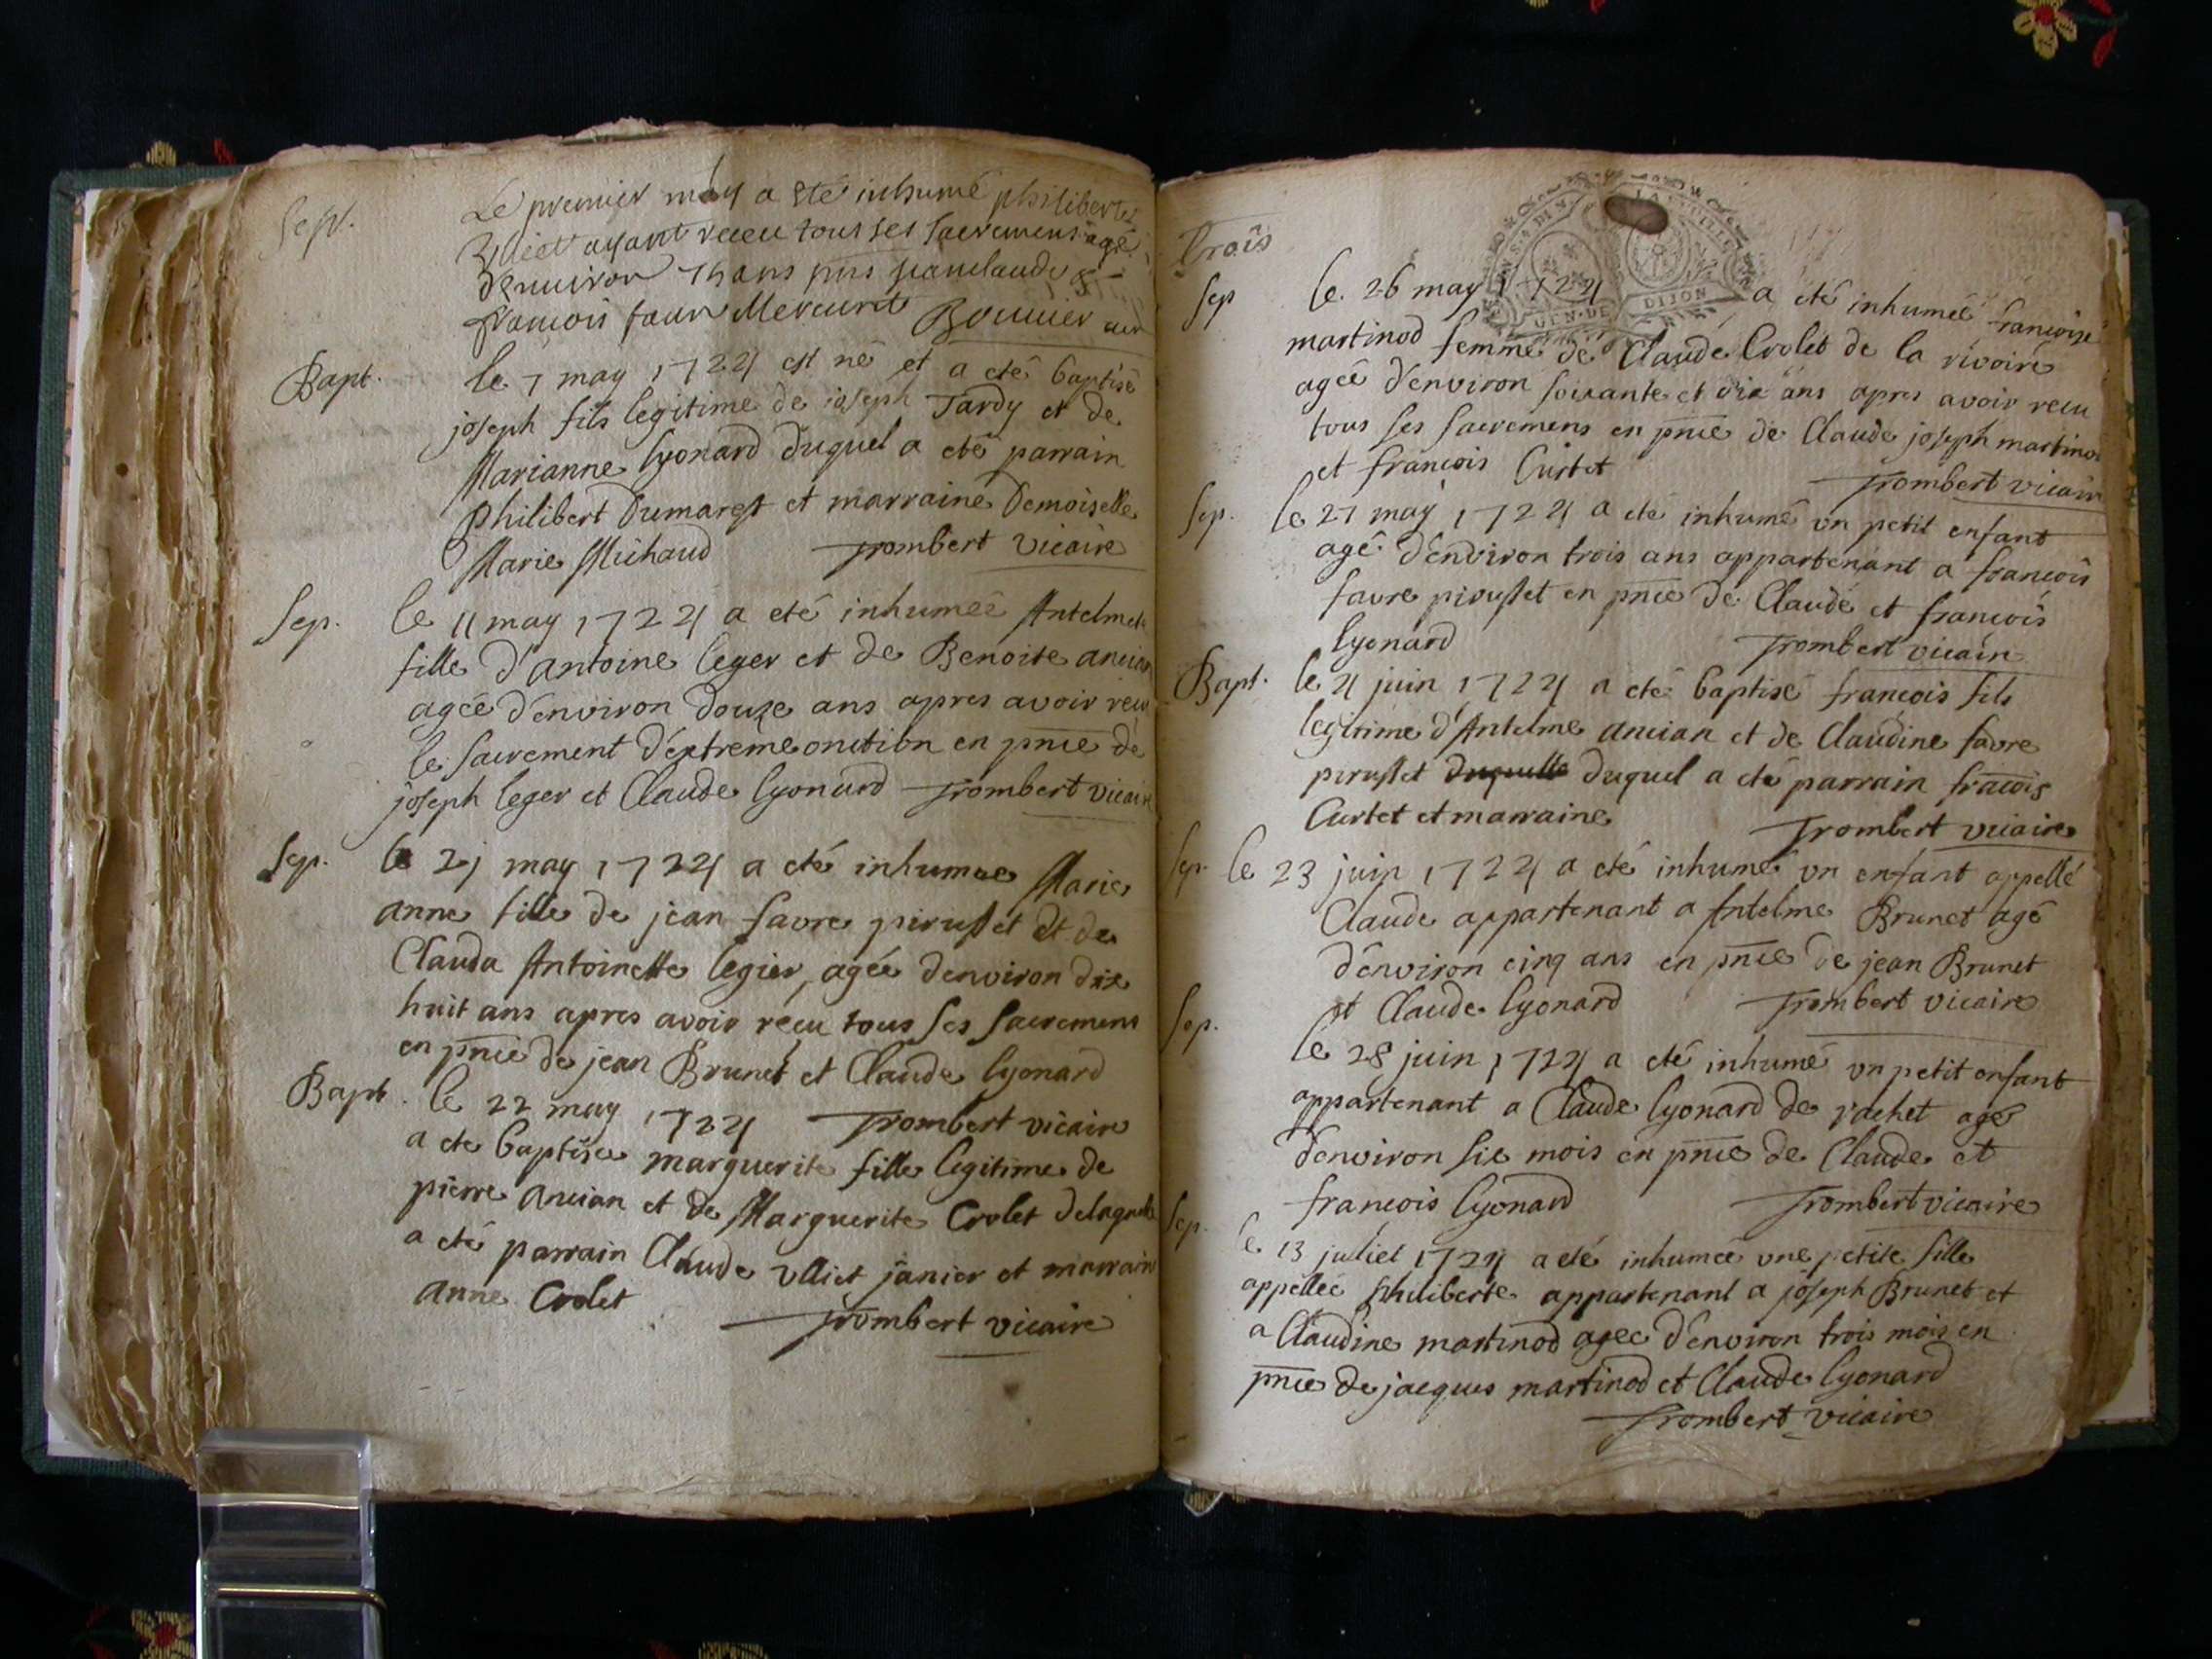 Sept.
Le premier may a été inhumé philibert
Ulliet ayant receu tous ses sacremens agé
denuiron ans
francois faure Mercuret Bouuier cur
Bapt.
le 7 may 1724 est né et a eté baptisé
joseph fils legitime de joseph Tardy et de
Marianne lyonard duquel a eté parrain
philibert Dumarest et marraine Demoiselle
Marie Michaud Trombert vicaire
Sep.
le 11 may 1724 a eté inhumeé Antelmet
fille d'antoine leger et de Benoite ancian
agée d'environ douze ans apres avoir recu
le sacrement d'extrême onction en pnce de
joseph leger et Claude lyonard Trombert vicaire
Sep.
le 21 may 1724 a eté inhumae Marie
anne fille de jean favre pirusset et de
Clauda Antoinette legier, agée denviron dix
huit ans apres avoir recu tous ses sacremens
en pnce de jean Brunet et Claude lyonard
Bapt. le 22 may 1724 Trombert vicaire
a ete baptisee marguerite fille legitime de
pierre ancian et de Marguerite Crolet delaquelle
a eté parrain Claude Ulliet janier et marrain
anne Crolet
Trombert vicaire
Trois
GEN. DE DIJON
Sep
le 26 may 1724 a eté inhumeé francoise
martinod femme de Claude Crolet de la rivoire
agée d'environ soixante et dix ans apres avoir recu
tous ses sacremens en pnce de Claude joseph martinod
et francois Curtet Trombert vicair
Sep. le 27 may 1724 a eté inhumé un petit enfant
agé d'environ trois ans appartenant a francois
favre pirusset en pnce de Claude et francois
lyonard Trombert vicain
Bapt. le 4 juin 1724 a eté baptisé francois fils
legitime d'Antelme ancian et de Claudine favre
pirusset duquelle duquel a eté parrain fracois
Curtet et marraine
Trombert vicaire
Sep. le 23 juin 1724 a eté inhumé un enfant appellé
Claude appartenant a Antelme Brunet agé
d'environ cinq ans en pnce de jean Brunet
et Claude lyonard Trombert vicaire
Sep.
le 28 juin 1724 a eté inhumé un petit enfant
appartenant a Claude lyonard de rachet agé
d'environ six mois en pnce de Claude et
francois lyonard Trombert vicaire
Sep.
le 13 juliet 1724 a eté inhumeé une petite fille
appellée philiberte appartenant a joseph Brunet et
a Claudine martinod ageé d'environ trois mois en
pnce de jacques martinod et Claude lyonard
Trombert vicaire